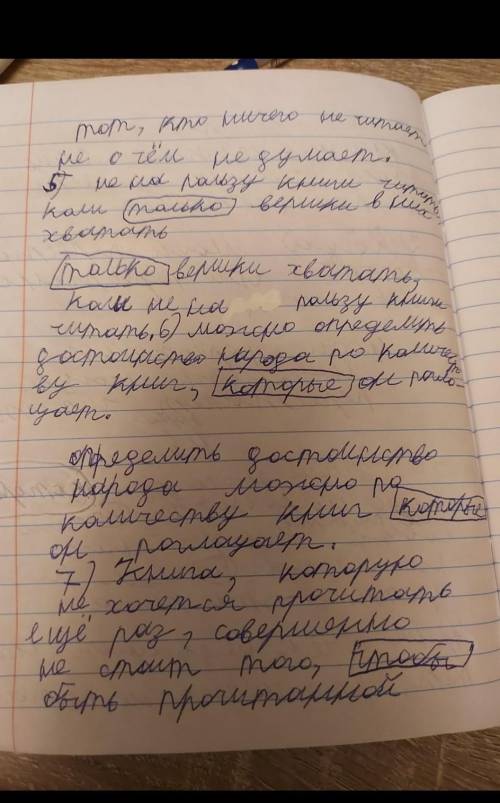 тот, кто ничего не читает
не о чём не думает.
5) не на пользу книги читать,
коли только вершки в них
хватать
только вершки хватать,
коли не на пользу книги
читать. 6) можно определить
достоинство народа по количест
ву книг, которые он погло-
щает.
определить достоинство
народа можно по
количеству книг которые
он поглощает.
7) Книга, которую
не хочется прочитать
ещё раз, совершенно
не стоит того, чтобы
быть прочитанной